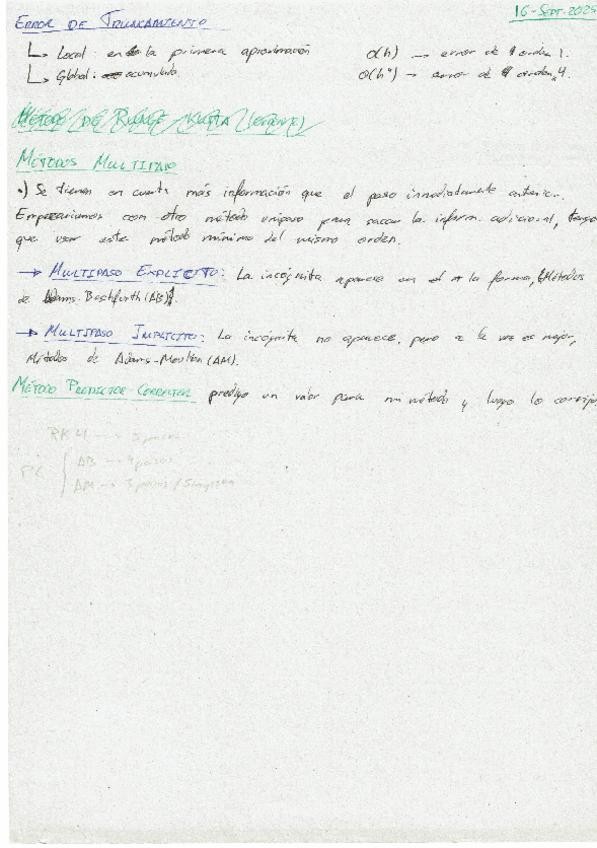 16-Sept-2025
ERROR DE TRUNCAMIENTO
↳ Local: en la primera aproximación    O(h) → error de orden 1.
↳ Global: acumulado    O(h⁴) → error de orden 4.
MÉTODO DE RUNGE KUTTA
MÉTODOS MULTIPASO
•) Se tienen en cuenta más información que el paso inmediatamente anterior.
Empezaríamos con otro método unipaso para sacar la inform. adicional, tengo
que usar este método mínimo del mismo orden.
→ MULTIPASO EXPLÍCITO: La incógnita aparece en el la forma, Métodos
de Adams-Bashforth (AB).
→ MULTIPASO IMPLÍCITO: La incógnita no aparece, pero a la vez es mejor,
Métodos de Adams-Moulton (AM).
MÉTODO PREDICTOR-CORRECTOR predigo un valor para mi método y luego lo corrijo
RK4 → 3 pasos
PC { AB → 4 pasos
AM → 3 pasos / Simpson